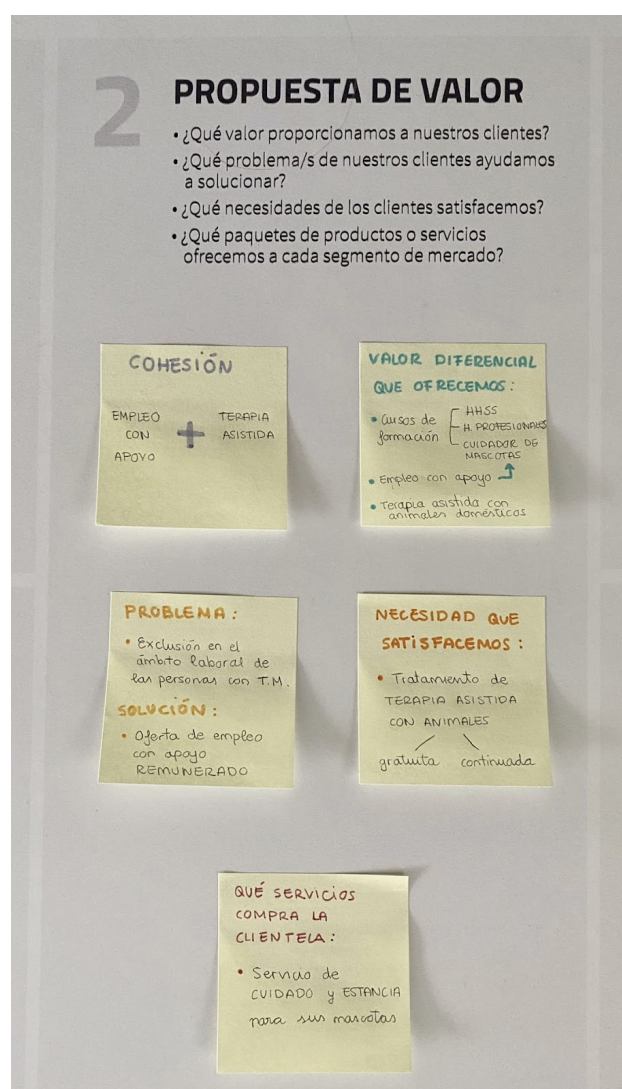 2
PROPUESTA DE VALOR
• ¿Qué valor proporcionamos a nuestros clientes?
• ¿Qué problema/s de nuestros clientes ayudamos
a solucionar?
• ¿Qué necesidades de los clientes satisfacemos?
• ¿Qué paquetes de productos o servicios
ofrecemos a cada segmento de mercado?
COHESIÓN
EMPLEO
CON
APOYO
+
TERAPIA
ASISTIDA
VALOR DIFERENCIAL
QUE OFRECEMOS:
• Cursos de
formación
HHSS
H. PROFESIONALES
CUIDADOR DE
MASCOTAS
• Empleo con apoyo
• Terapia asistida con
animales domésticos
PROBLEMA:
• Exclusión en el
ámbito laboral de
las personas con T.M.
SOLUCIÓN:
• Oferta de empleo
con apoyo
REMUNERADO
NECESIDAD QUE
SATISFACEMOS:
• Tratamiento de
TERAPIA ASISTIDA
CON ANIMALES
gratuita continuada
QUÉ SERVICIOS
COMPRA LA
CLIENTELA:
• Servicio de
CUIDADO y ESTANCIA
para sus mascotas